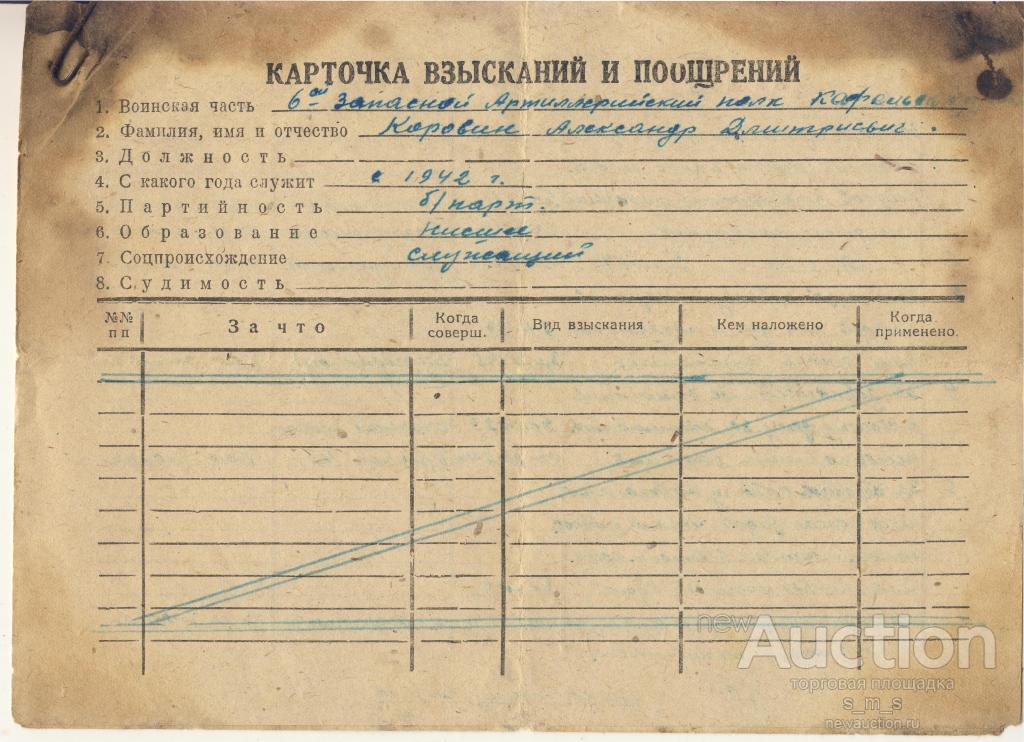 КАРТОЧКА ВЗЫСКАНИЙ И ПООЩРЕНИЙ
1. Воинская часть 6ой Запасной Артиллерийский полк
2. Фамилия, имя и отчество Коровин Александр Дмитриевич.
3. Должность
4. С какого года служит с 1942 г.
5. Партийность б/парт.
6. Образование низшее
7. Соцпроисхождение служащий
8. Судимость
№№ пп За что Когда соверш. Вид взыскания Кем наложено Когда применено.
newAuction
торговая площадка
s_m_s
newauction.ru